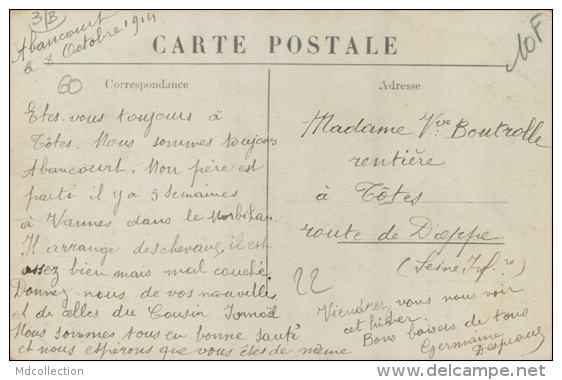 3/3
Abancourt
le 8 Octobre 1914
10F
CARTE POSTALE
60
Correspondance
Adresse
Etes-vous toujours à
Tôtes. Nous sommes toujours
Abancourt. Mon père est
parti il y a 3 semaines
à Vannes dans le Morbihan.
Il arrange des chevaux, il est
assez bien mais mal couché.
Donnez-nous de vos nouvelles
et de celles du Cousin
Nous sommes tous en bonne santé
et nous espérons que vous êtes de même
Madame Vve Boutrolle
rentière
à Tôtes
route de Dieppe
(Seine Infre)
22
Viendrez vous nous voir
cet hiver.
Bons baisers de tous
Germaine
Mdcollection
www.delcampe.net